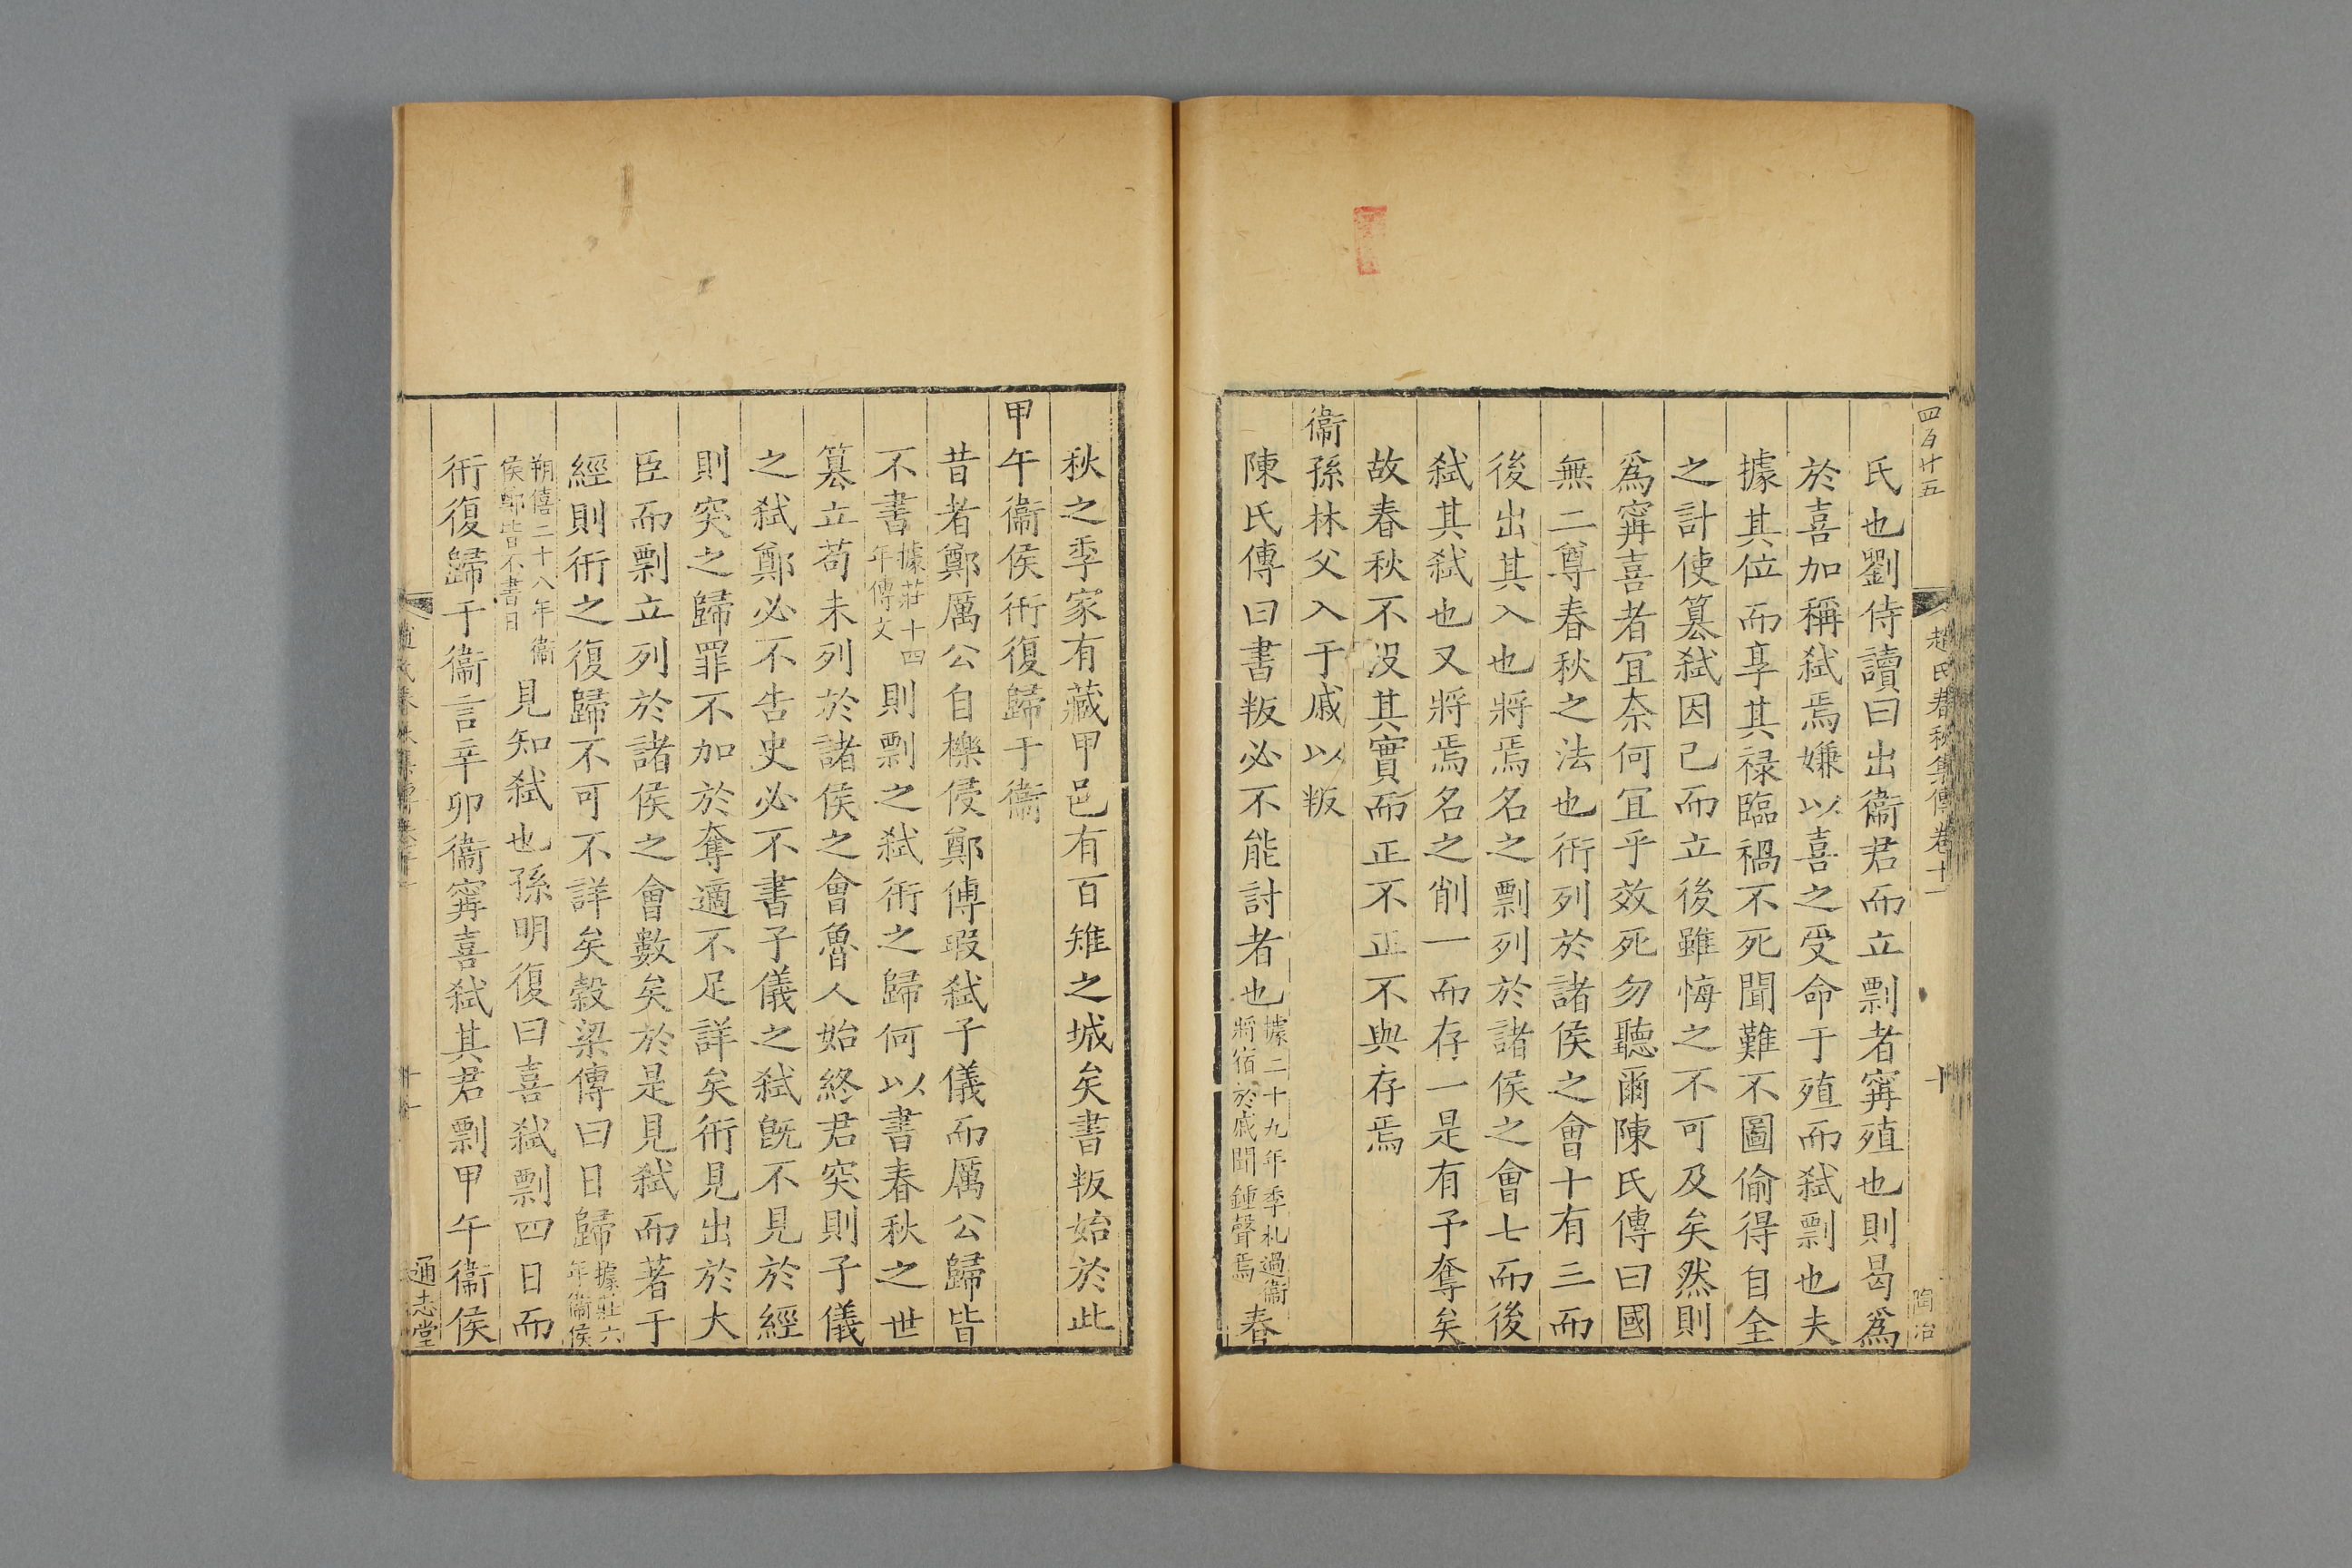 四百廿五
趙氏春秋集傳卷十一
十
陶冶
氏也劉侍讀曰出衞君而立剽者甯殖也則曷爲
於喜加稱弑焉嫌以喜之受命于殖而弑剽也夫
據其位而享其禄臨禍不死聞難不圖偷得自全
之計使篡弑因己而立後雖悔之不可及矣然則
爲甯喜者宜奈何宜乎效死勿聽爾陳氏傳曰國
無二尊春秋之法也衎列於諸侯之會十有三而
後出其入也將焉名之剽列於諸侯之會七而後
弑其弑也又將焉名之削一而存一是有予奪矣
故春秋不沒其實而正不正不與存焉
衞孫林父入于戚以叛
陳氏傳曰書叛必不能討者也據二十九年季札過衞將宿於戚聞鍾聲焉春
秋之季家有藏甲邑有百雉之城矣書叛始於此
甲午衞侯衎復歸于衞
昔者鄭厲公自櫟侵鄭傅瑕弑子儀而厲公歸皆
不書據莊十四年傳文則剽之弑衎之歸何以書春秋之世
篡立苟未列於諸侯之會魯人始終君突則子儀
之弑鄭必不告史必不書子儀之弑旣不見於經
則突之歸罪不加於奪適不足詳矣衎見出於大
臣而剽立列於諸侯之會數矣於是見弑而著于
經則衎之復歸不可不詳矣穀梁傳曰日歸據莊六年衞侯
朔僖二十八年衞侯鄭皆不書日見知弑也孫明復曰喜弑剽四日而
衎復歸于衞言辛卯衞甯喜弑其君剽甲午衞侯
通志堂